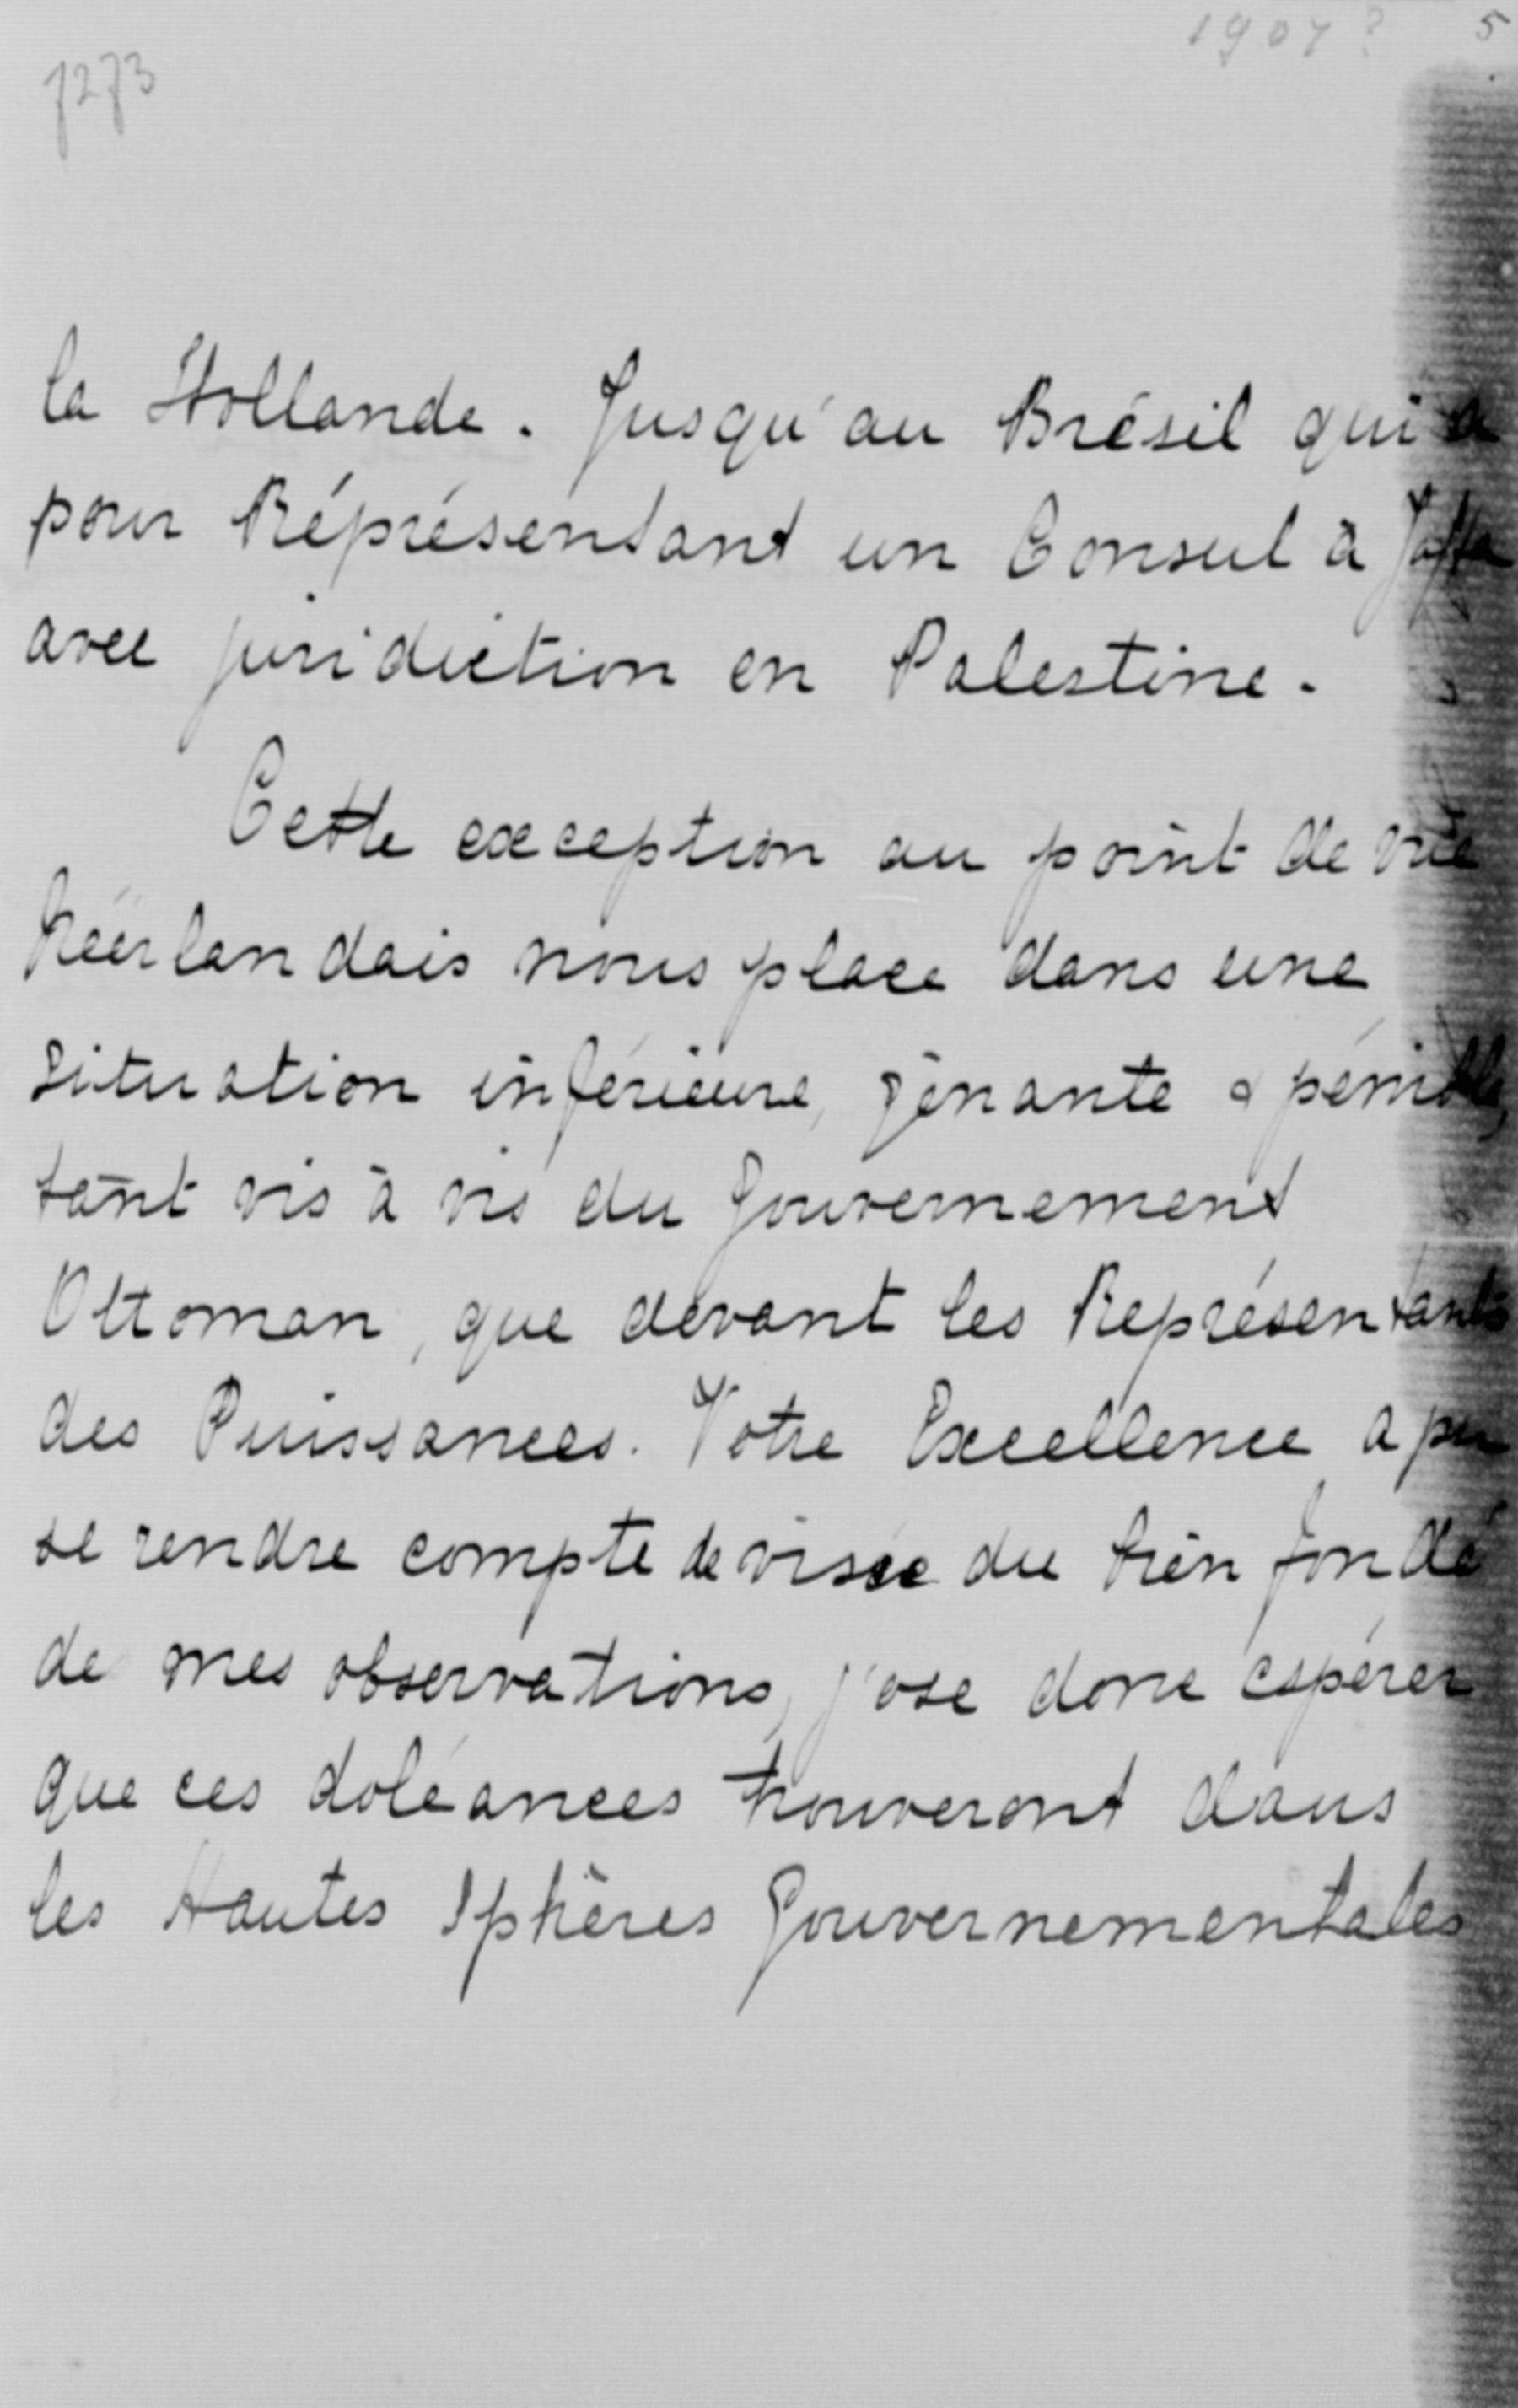 1907? 5
7273
la Hollande. Jusqu'au Brésil qui a
pour Réprésentant un Consul à Jaffa
avec juridiction en Palestine.
Cette exception au point de vue
Néérlandais nous place dans une
situation inférieure, gênante & pénible,
tant vis à vis du Gouvernement
Ottoman, que devant les Représentants
des Puissances. Votre Excellence a pu
se rendre compte de visée du bien fondé
de mes observations, j'ose donc espérer
que ces doléances trouveront dans
les Hautes Sphères Gouvernementales